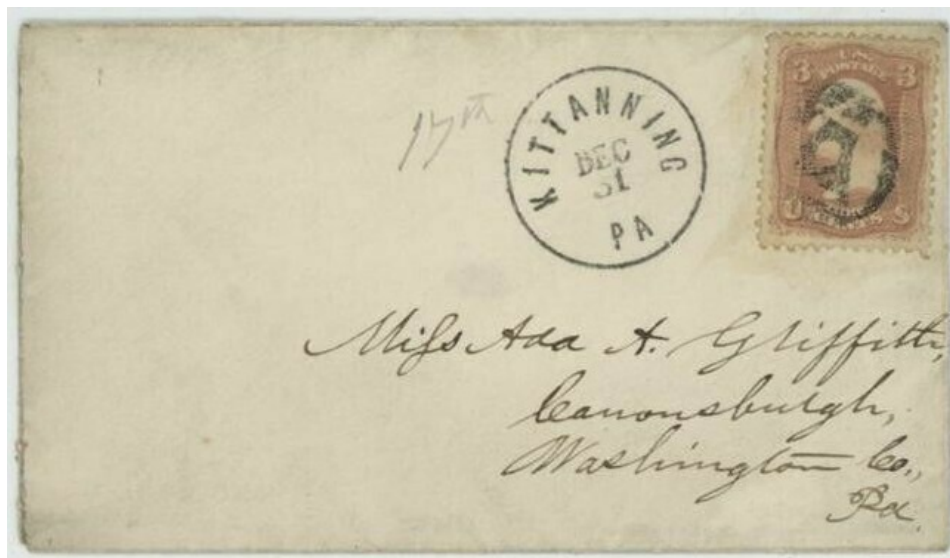 17th
KITTANNING
DEC
31
PA
3 3
POSTAGE
U S
Miss Ada A. Griffith,
Canonsburgh,
Washington Co.,
Pa.